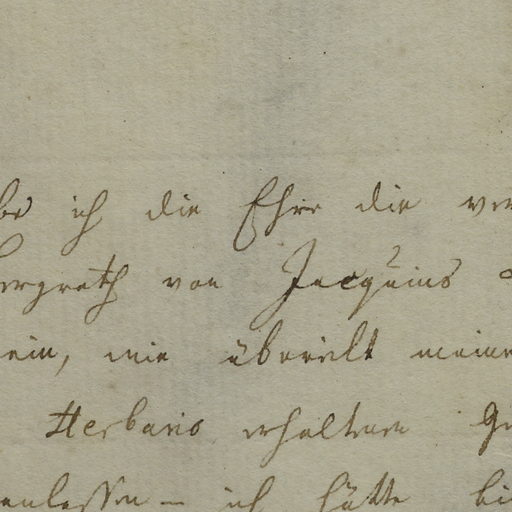 be ich die Ehre die ver
bergrath von Jacquins
ein, wie übereilt meine
Herbario erhaltenen
anlassen – ich hätte